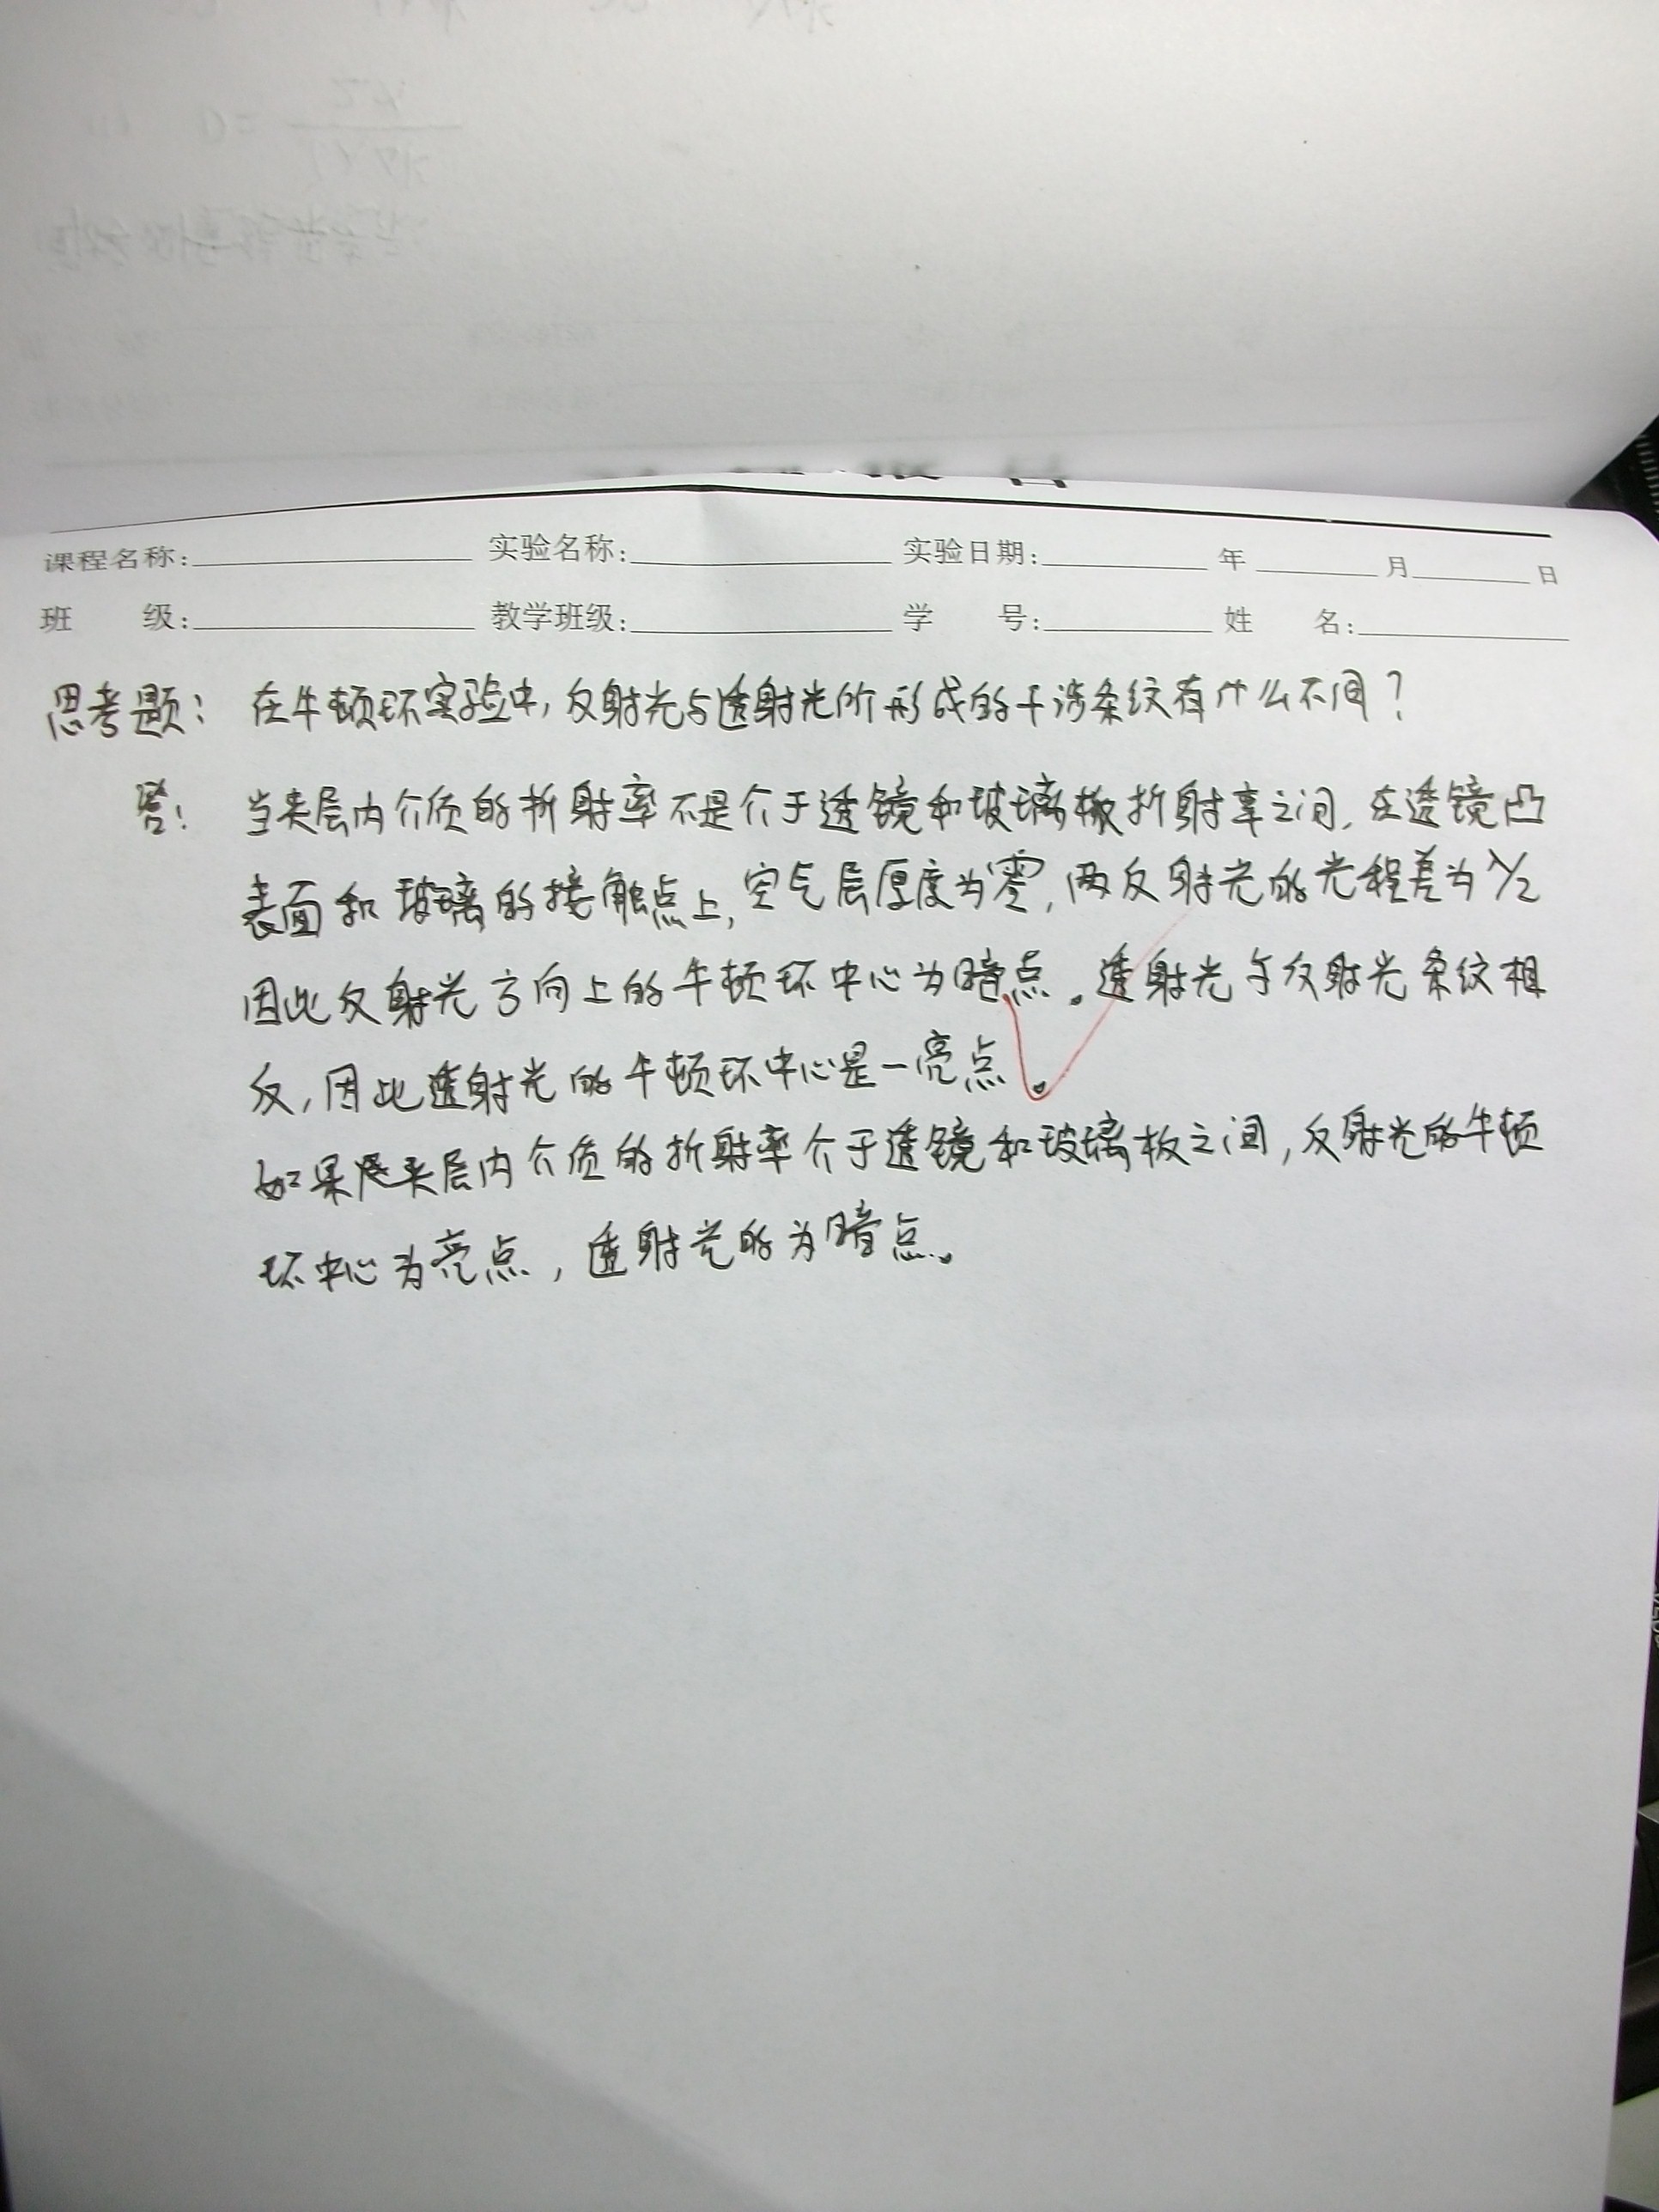 课程名称: 实验名称: 实验日期: 年 月 日
班 级: 教学班级: 学 号: 姓 名:
思考题: 在牛顿环实验中,反射光与透射光所形成的干涉条纹有什么不同?
答: 当夹层内介质的折射率不是介于透镜和玻璃板折射率之间,在透镜凸
表面和玻璃的接触点上,空气层厚度为零,两反射光的光程差为λ/2
因此反射光方向上的牛顿环中心为暗点。透射光与反射光条纹相
反,因此透射光的牛顿环中心是一亮点.
如果夹层内介质的折射率介于透镜和玻璃板之间,反射光的牛顿
环中心为亮点,透射光的为暗点。